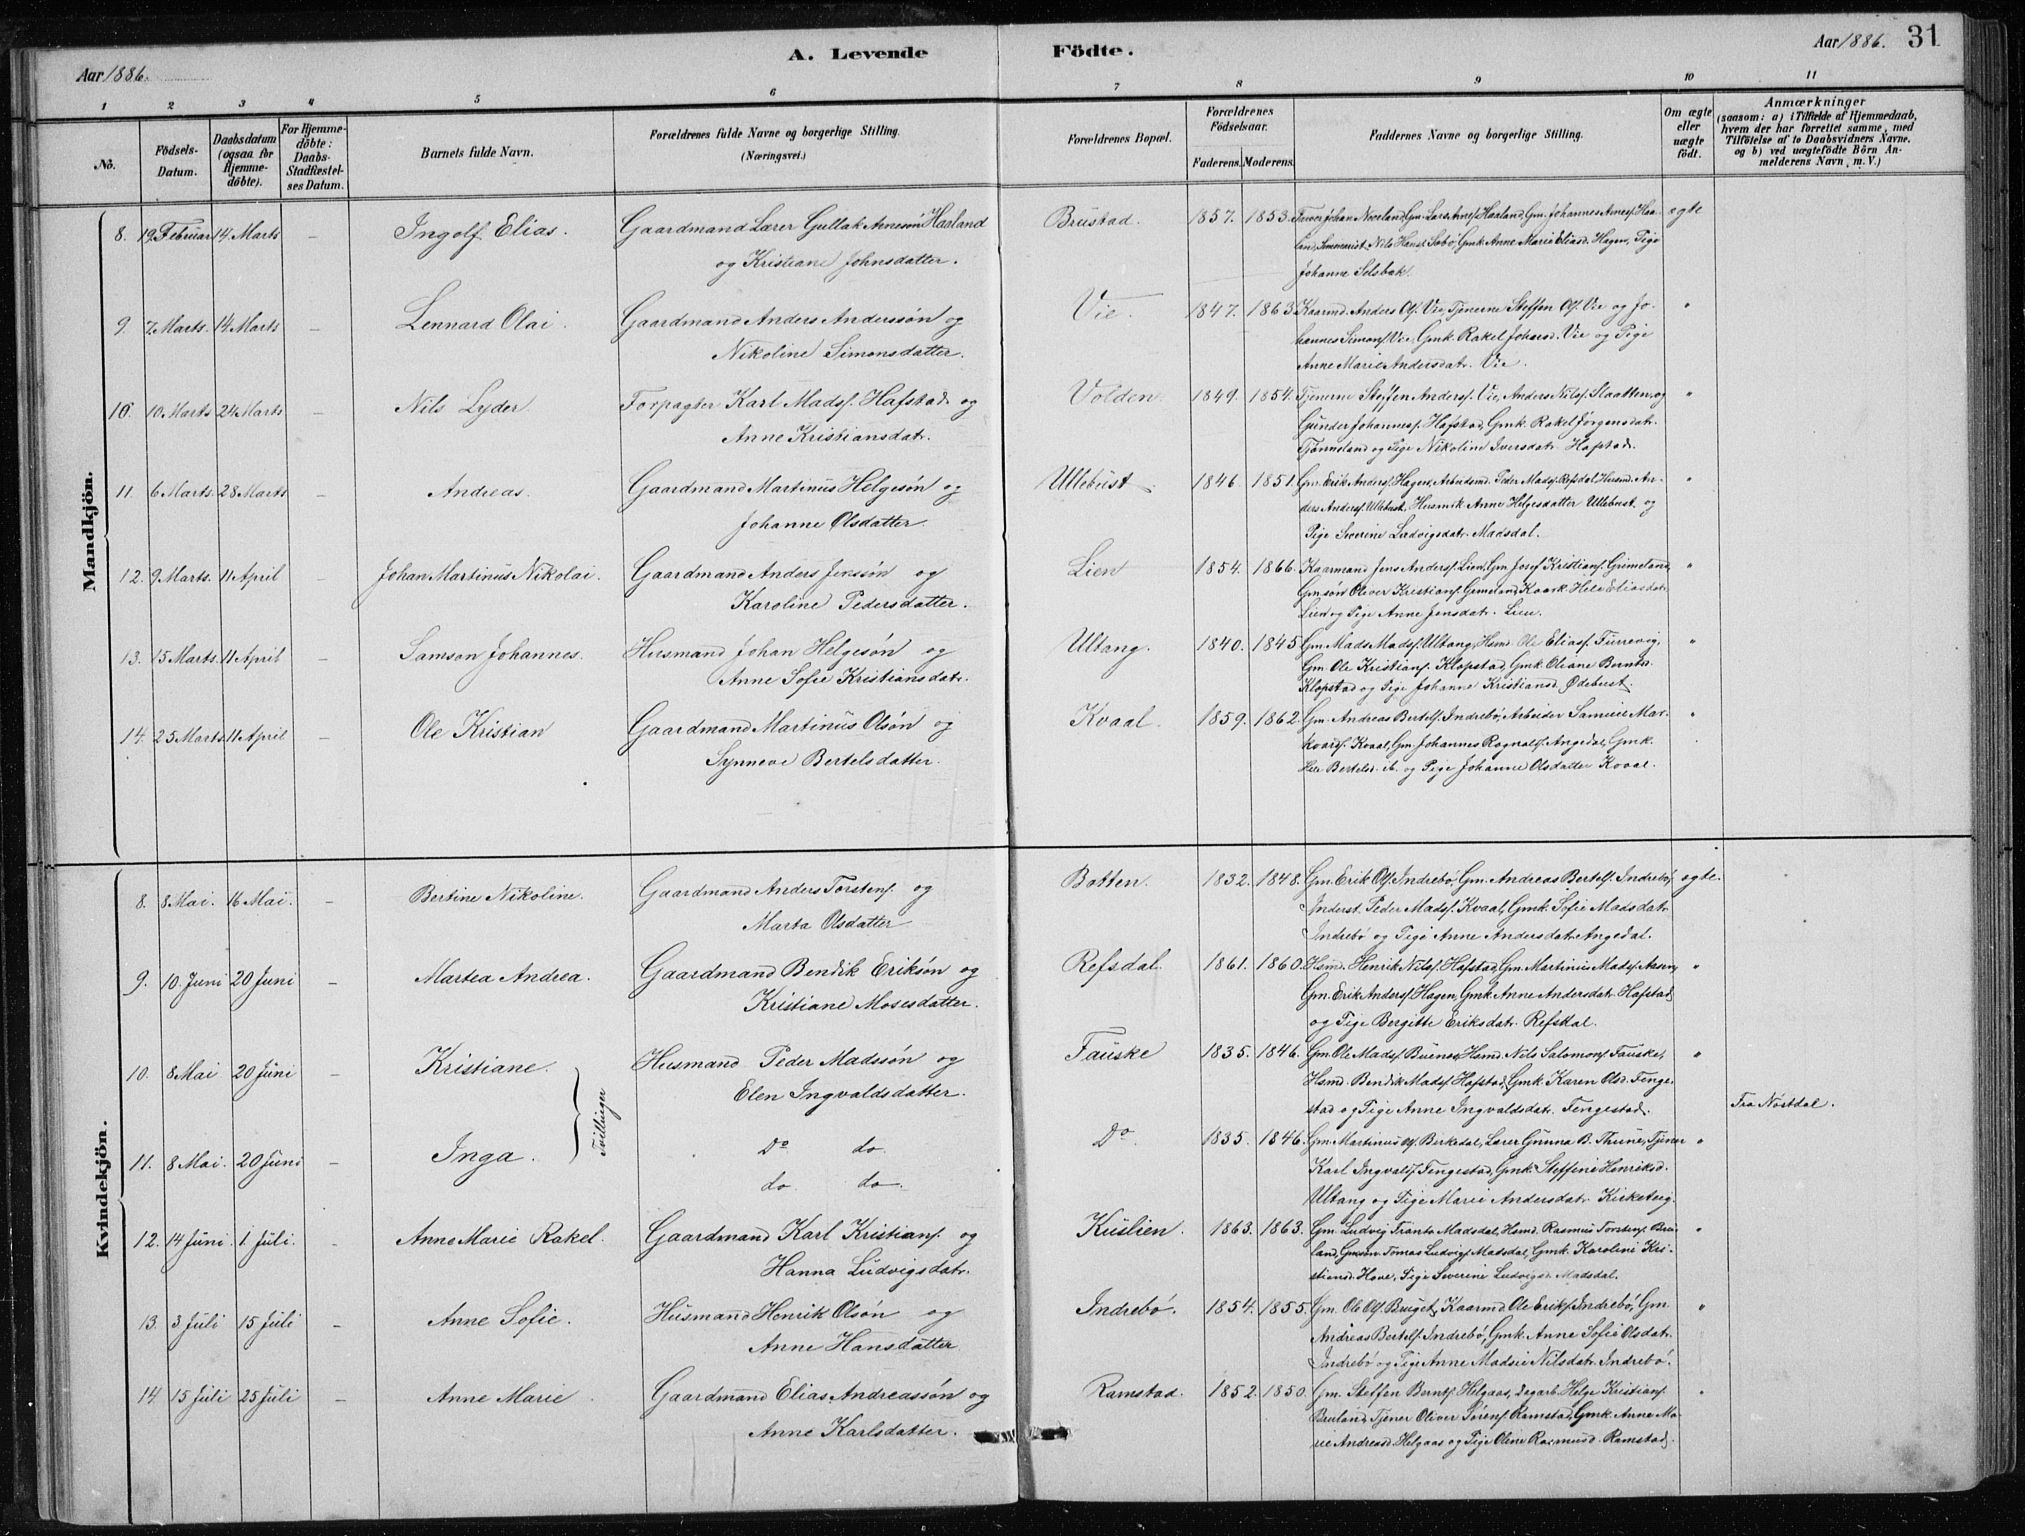 Aar 1886.
A. Levende
Födte.
Aar 1886.
31
1 2 3 4 5 6 7 8 9 10 11
Nö.
Födsels-
Datum.
Daabsdatum
(ogsaa for
Hjemme-
döbte).
For Hjemme-
döbte:
Daabs-
Stadfæstel-
ses Datum.
Barnets fulde Navn.
Forældrenes fulde Navne og borgerlige Stilling.
(Næringsvei.)
Forældrenes Bopæl.
Forældrenes
Födselsaar.
Faderens. Moderens.
Faddernes Navne og borgerlige Stilling.
Om ægte
eller
uægte
födt.
Anmærkninger
(saasom: a) i Tilfælde af Hjemmedaab,
hvem der har forrettet samme, med
Tilföielse af to Daabsvidners Navne.
og b) ved uægtefödte Börn An-
melderens Navn, m. V.)
Mandkjön.
8. 19 Februar 14 Marts – Ingolf Elias. Gaardmand Lærer Gullak Annesön Haaland
og Kristiane Johnsdatter.
Brustad. 1857. 1853. Johan Noveland, Gm. Lars Haaland, Gm. Johannes
Nils Hans. Gmk. Anne Marie Eliasd. Hagen, Pige
Johanne Solsbak.
ægte
9. 7 Marts. 14 Marts – Lennard Olai. Gaardmand Anders Anderssön og
Nikoline Simonsdatter.
Vie. 1847. 1863. Kaarmd. Anders Ols. Vie, Tjenerne Steffen Ols. Vie og Jo-
hannes Simons. Vie, Gmk. Rakel Johansd. Vie og Pige
Anne Marie Andersdatr. Vie.
"
10. 10 Marts 24 Marts – Nils Lyder. Forpagter Karl Mads. Hafstad og
Anne Kristiansdatr.
Volden. 1849. 1854. Tjenerne Steffen Anders. Vie, Anders Nils. Slaatten, og
Gunder Johannes. Hafstad, Gmk. Rakel Jörgensdatr.
Tjönneland og Pige Nikoline Iversdatr. Hafstad.
"
11. 6 Marts. 28 Marts – Andreas. Gaardmand Martinus Helgesön og
Johanne Olsdatter.
Ullebust. 1846 1851. Gm. Erik Anders. Hagen, Arbeidsmd. Peder Mads. Refsdal, Husmd. An-
ders Anders. Ullebust, Husmk. Anne Helgesdatter Ullebust og
Pige Severine Ludvigsdatr. Madsdal.
"
12. 9 Marts. 11 April – Johan Martinus Nikolai. Gaardmand Anders Jenssön og
Karoline Pedersdatter.
Lien 1854. 1866. Kaarmand Jens Anders. Lien, Gm. Josef Kristians. Grimeland,
Gm. sön Oliver Kristians. Grimeland, Kaark. Hele Eliasdatr.
Lien og Pige Anne Jensdatr. Lien.
"
13. 15 Marts. 11 April – Samson Johannes. Husmand Johan Helgesön og
Anne Sofie Kristiansdatr.
Ultang. 1840. 1845 Gm. Mads Mads. Ultang, Hsmd. Ole Elias. Furrevig,
Gm. Ole Kristians. Klopstad, Gmk. Oliane Berntsd.
Klopstad og Pige Johanne Kristiansd. Ödebust.
"
14. 25 Marts. 11 April – Ole Kristian Gaardmand Martinus Olsön og
Synneve Bertelsdatter.
Kvaal. 1859. 1862. Gm. Andreas Bertels. Indrebö, Arbeider Samuel Mar-
kvards. Kvaal, Gm. Johannes Rognals. Angedal, Gmk.
Hele Bertelsd. og Pige Johanne Olsdatter Kvaal.
"
Kvindekjön.
8. 8 Mai. 16 Mai. – Bertine Nikoline. Gaardmand Anders Torstens. og
Marta Olsdatter
Botten. 1832. 1848. Gm. Erik Ols. Indrebö, Gm. Andreas Bertels. Indrebö,
Inderst. Peder Mads. Kvaal, Gmk. Sofie Madsdatr.
Indrebö og Pige Anne Andersdatr. Angedal.
ægte.
9. 10 Juni 20 Juni – Martea Andrea. Gaardmand Bendik Eriksön og
Kristiane Mosesdatter.
Refsdal. 1861. 1860. Hsmd. Henrik Nils. Hafstad, Gm. Martinus Mads. Aasen,
Gm. Erik Anders. Hagen, Gmk. Anne Andersdatr. Hafstad
og Pige Bergitte Eriksdatr. Refsdal.
"
10. 8 Mai 20 Juni – Kristiane. Husmand Peder Madssön og
Elen Ingvaldsdatter.
Tvillinger
Fauske 1835. 1846. Gm. Ole Mads. Buene, Hsmd. Nils Salomons. Fauske,
Hsmd. Bendik Mads. Hafstad, Gmk. Karen Olsd. Fenge-
stad og Pige Anne Ingvaldsdatr. Fengestad.
" Fra Nöstdal.
11. 8 Mai. 20 Juni – Inga. Do do.
do do.
Do. 1835. 1846. Gm. Martinus Ols. Birkedal, Lærer Gunna B. Thune, Tjener
Karl Ingvals. Fengestad, Gmk. Steffine Henriksd.
Ultang og Pige Marie Andersdatr. Kirketeig.
"
12. 14 Juni. 1. Juli. – Anne Marie Rakel. Gaardmand Karl Kristians. og
Hanna Ludvigsdatr.
Kuslien. 1863. 1863. Gm. Ludvig Frants. Madsdal, Hsmd. Rasmus Torstens. Bru-
land, Gm. sön Tomas Ludvigs. Madsdal, Gmk. Karoline Kri-
stiansd. Hove, Pige Severine Ludvigsd. Madsdal.
"
13. 3 Juli 15 Juli – Anne Sofie. Husmand Henrik Olsön og
Anne Hansdatter
Indrebö. 1854. 1855. Gm. Ole Ols. Bruget, Kaarmd. Ole Eriks. Indrebö, Gm.
Andreas Bertels. Indrebö, Gmk. Anne Sofie Olsdatr.
Indrebö og Pige Anne Madsie Nilsdatr. Indrebö.
"
14 15 Juli 25 Juli – Anne Marie. Gaardmand Elias Andreassön og
Anne Karlsdatter.
Ramstad. 1852. 1850. Gm. Steffen Bernts. Helgaas, Dagarb. Helge Kristians.
Bruland, Tjener Oliver Sörens. Ramstad, Gmk. Anne Ma-
rie Andreasd. Helgaas og Pige Oline Rasmusd. Ramstad.
"